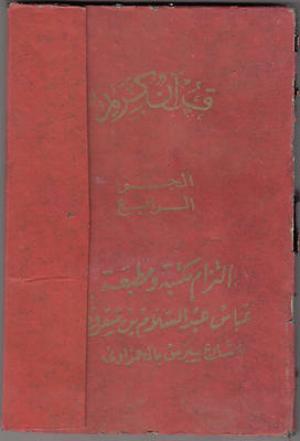 قرآن كريم
الجزء
الرابع
التزام مكتبة ومطبعة
عباس عبد السلام بن شقرون
بشارع بيبرس بالحمزاوى